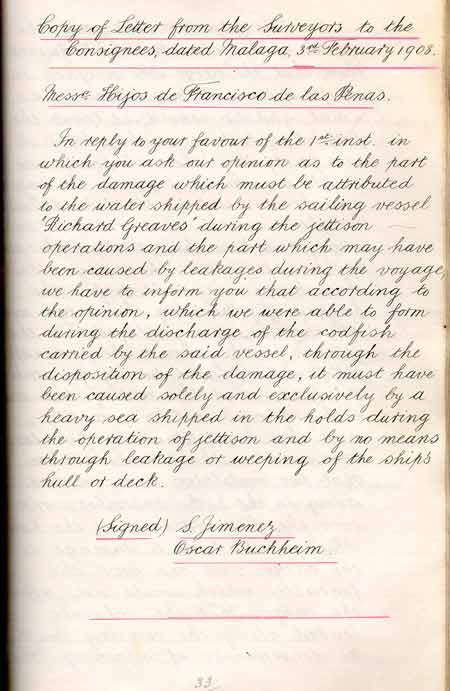 Copy of Letter from the Surveyors to the
Consignees, dated Malaga, 3rd February 1908.
Messrs Hijos de Francisco de las Penas.
In reply to your favour of the 1st inst. in
which you ask our opinion as to the part
of the damage which must be attributed
to the water shipped by the sailing vessel
"Richard Greaves" during the jettison
operations and the part which may have
been caused by leakages during the voyage,
we have to inform you that according to
the opinion, which we were able to form
during the discharge of the codfish
carried by the said vessel, through the
disposition of the damage, it must have
been caused solely and exclusively by a
heavy sea shipped in the holds during
the operation of jettison and by no means
through leakage or weeping of the ship's
hull or deck.
(Signed) S. Jimenez.
Oscar Buchheim.
33